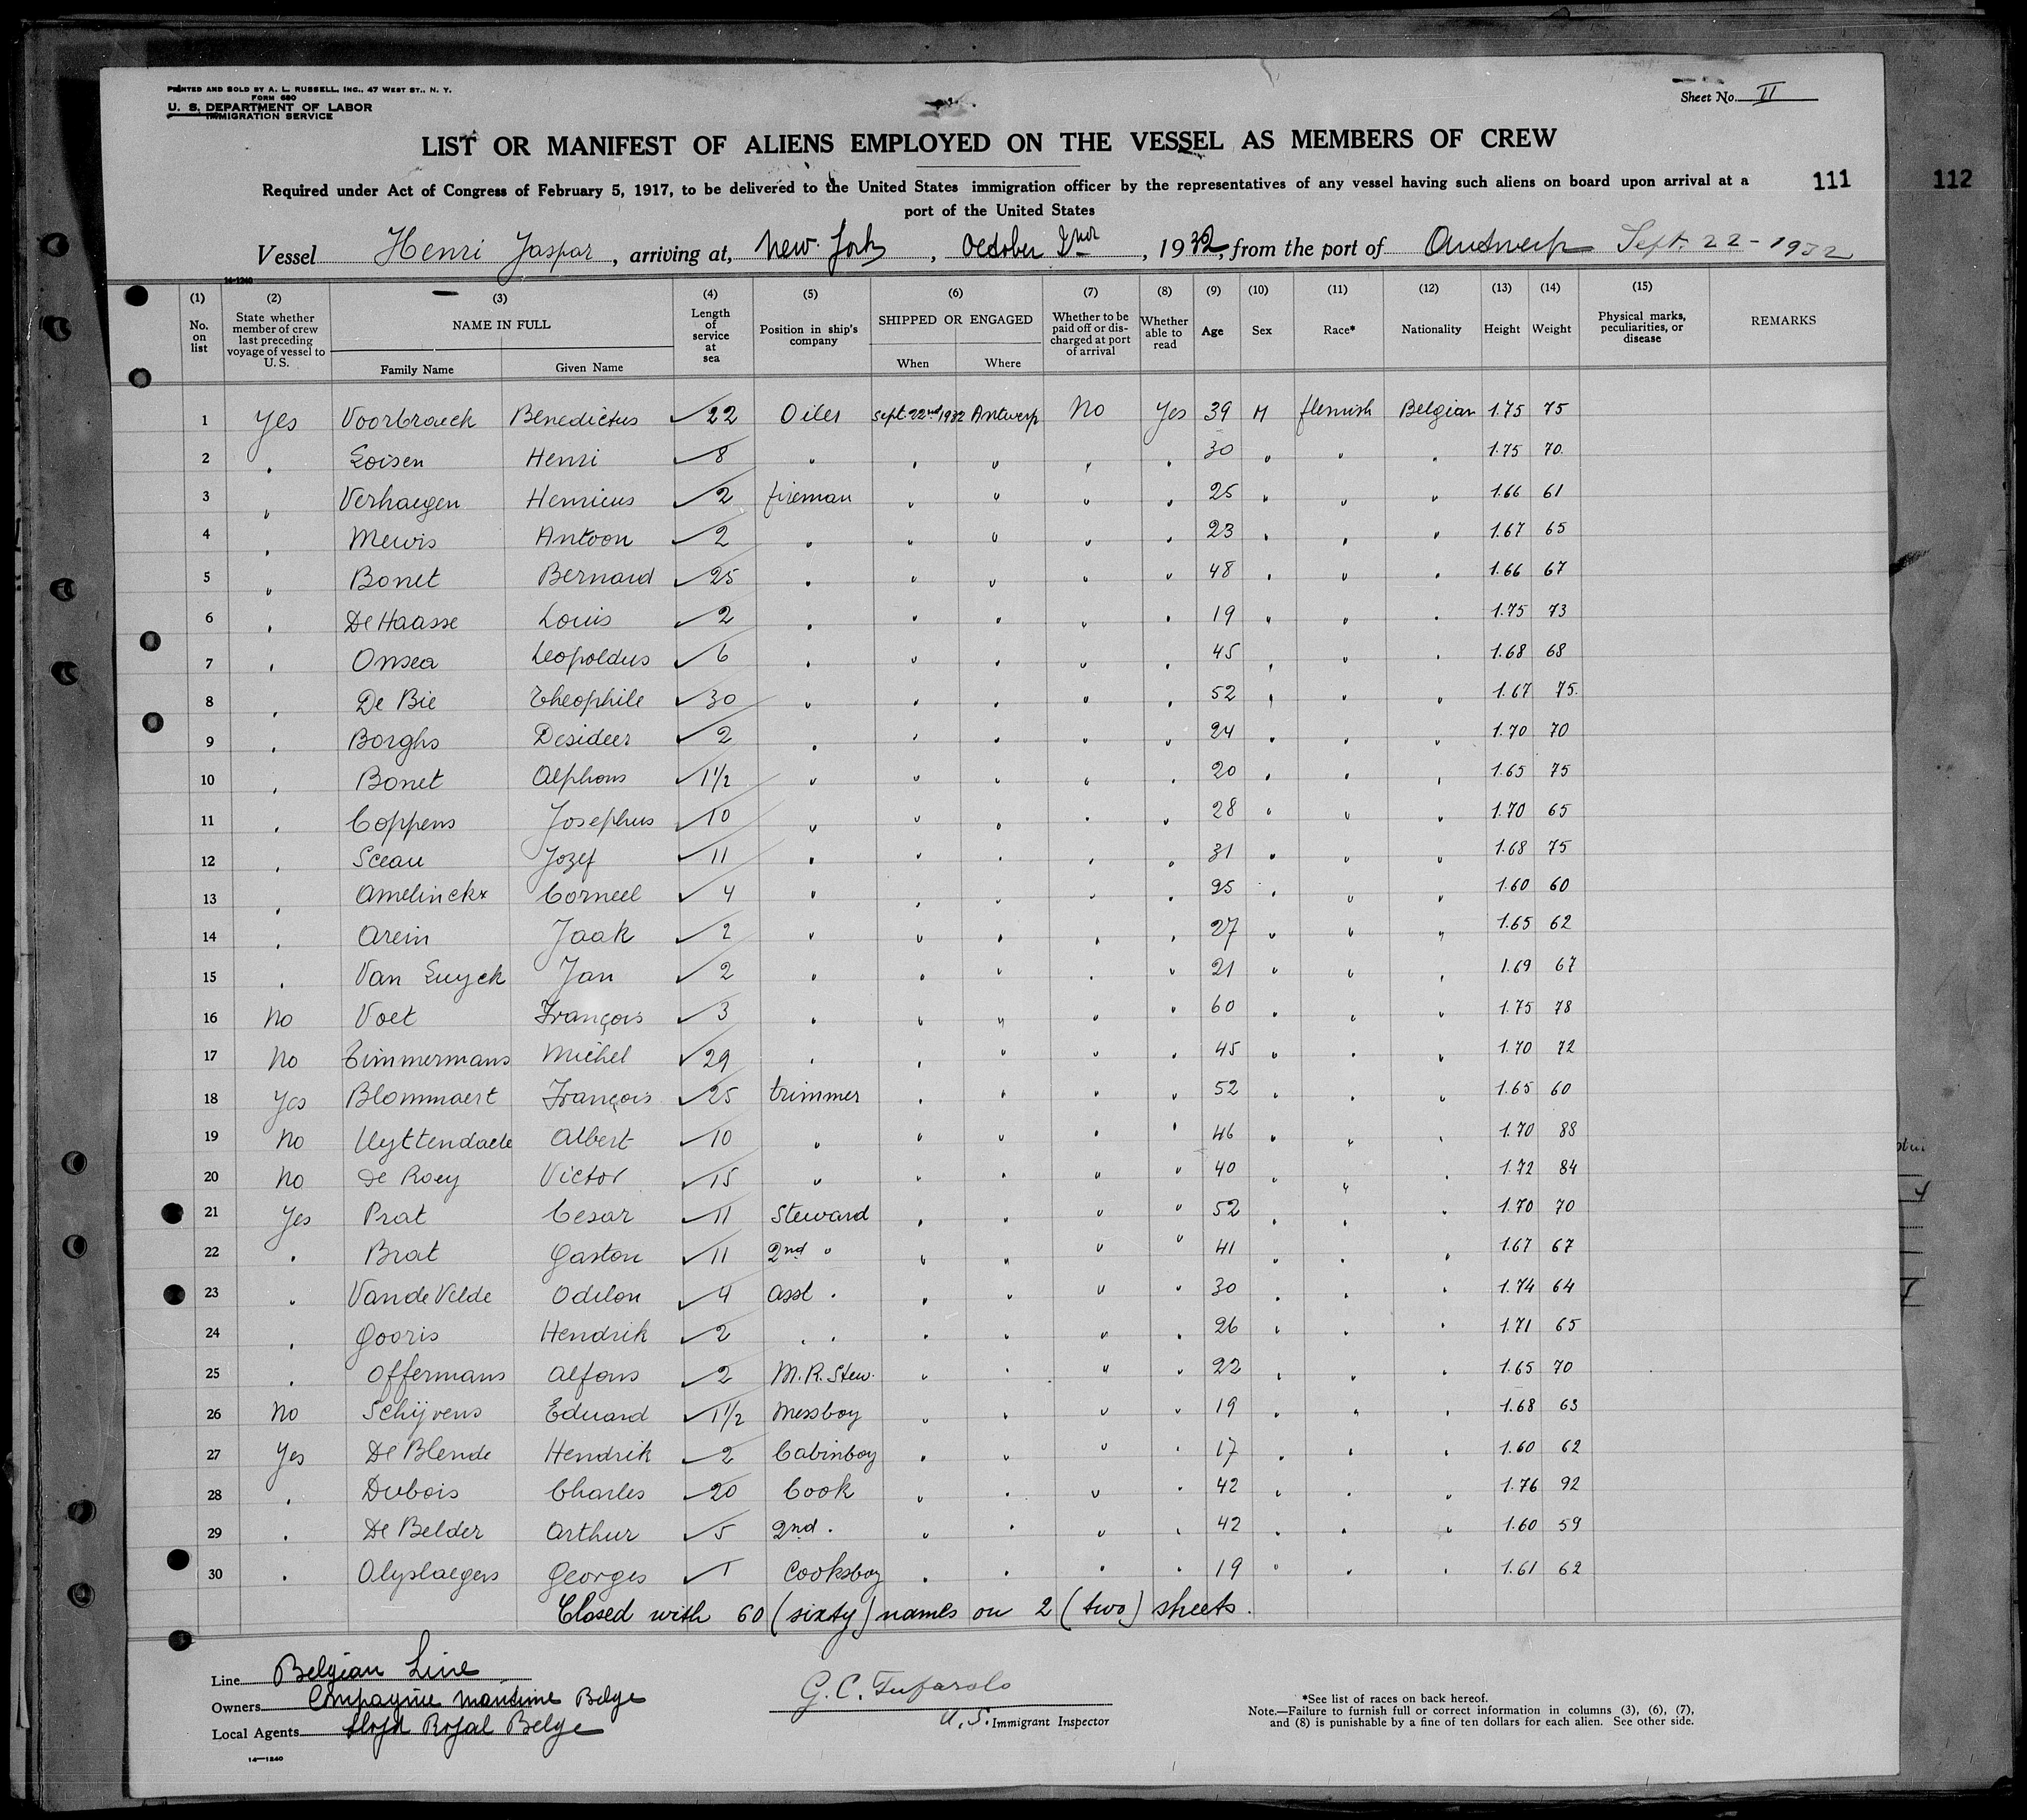 PRINTED AND SOLD BY A. L. RUSSELL, INC., 47 WEST ST., N. Y.
FORM 680
U. S. DEPARTMENT OF LABOR
IMMIGRATION SERVICE
Sheet No. II
LIST OR MANIFEST OF ALIENS EMPLOYED ON THE VESSEL AS MEMBERS OF CREW
Required under Act of Congress of February 5, 1917, to be delivered to the United States immigration officer by the representatives of any vessel having such aliens on board upon arrival at a
port of the United States
111
112
Vessel Henri Jaspar, arriving at, New York, October 2nd, 1932, from the port of Antwerp Sept. 22-1932
14-1240
(1) No. on list (2) State whether member of crew last preceding voyage of vessel to U. S. (3) NAME IN FULL Family Name Given Name (4) Length of service at sea (5) Position in ship's company (6) SHIPPED OR ENGAGED When Where (7) Whether to be paid off or discharged at port of arrival (8) Whether able to read (9) Age (10) Sex (11) Race* (12) Nationality (13) Height (14) Weight (15) Physical marks, peculiarities, or disease REMARKS
1 Yes Voorbraeck Benedictus ✓ 22 Oiler Sept. 22nd 1932 Antwerp No Yes 39 M flemish Belgian 1.75 75
2 " Loisen Henri ✓ 8 " " " " " 30 " " " 1.75 70
3 " Verhaegen Henricus ✓ 2 fireman " " " " 25 " " " 1.66 61
4 " Mewis Antoon ✓ 2 " " " " " 23 " " " 1.67 65
5 " Bonet Bernard ✓ 25 " " " " " 48 " " " 1.66 67
6 " De Haasse Louis ✓ 2 " " " " " 19 " " " 1.75 73
7 " Onsea Leopoldus ✓ 6 " " " " " 45 " " " 1.68 68
8 " De Bie Theophile ✓ 30 " " " " " 52 " " " 1.67 75
9 " Borghs Desideer ✓ 2 " " " " " 24 " " " 1.70 70
10 " Bonet Alphons ✓ 1 1/2 " " " " " 20 " " " 1.65 75
11 " Coppens Josephus ✓ 10 " " " " " 28 " " " 1.70 65
12 " Sceau Jozef ✓ 11 " " " " " 31 " " " 1.68 75
13 " Amelinckx Corneel ✓ 4 " " " " " 25 " " " 1.60 60
14 " Arein Jaak ✓ 2 " " " " " 27 " " " 1.65 62
15 " Van Luyck Jan ✓ 2 " " " " " 21 " " " 1.69 67
16 No Voet François ✓ 3 " " " " " 60 " " " 1.75 78
17 No Timmermans Michel ✓ 29 " " " " " 45 " " " 1.70 72
18 Yes Blommaert François ✓ 25 trimmer " " " " 52 " " " 1.65 60
19 No Uyttendaele Albert ✓ 10 " " " " " 46 " " " 1.70 88
20 No De Roey Victor ✓ 15 " " " " " 40 " " " 1.72 84
21 Yes Prat Cesar ✓ 11 Steward " " " " 52 " " " 1.70 70
22 " Brat Gaston ✓ 11 2nd " " " " " 41 " " " 1.67 67
23 " Van de Velde Odilon ✓ 4 asst " " " " " 30 " " " 1.74 64
24 " Gooris Hendrik ✓ 2 " " " " " " 26 " " " 1.71 65
25 " Offermans Alfons ✓ 2 M.R. Stew. " " " " 22 " " " 1.65 70
26 No Schijvens Eduard ✓ 1 1/2 Messboy " " " " 19 " " " 1.68 63
27 Yes De Blende Hendrik ✓ 2 Cabinboy " " " " 17 " " " 1.60 62
28 " Dubois Charles ✓ 20 Cook " " " " 42 " " " 1.76 92
29 " De Belder Arthur ✓ 5 2nd " " " " " 42 " " " 1.60 59
30 " Olyslaegers Georges ✓ 1 Cooksboy " " " " 19 " " " 1.61 62
Closed with 60 (sixty) names on 2 (two) sheets.
Line Belgian Line
Owners Compagnie Maritime Belge
Local Agents Lloyd Royal Belge
14-1240
G. C. Tufarolo
U. S. Immigrant Inspector
*See list of races on back hereof.
Note.—Failure to furnish full or correct information in columns (3), (6), (7),
and (8) is punishable by a fine of ten dollars for each alien. See other side.